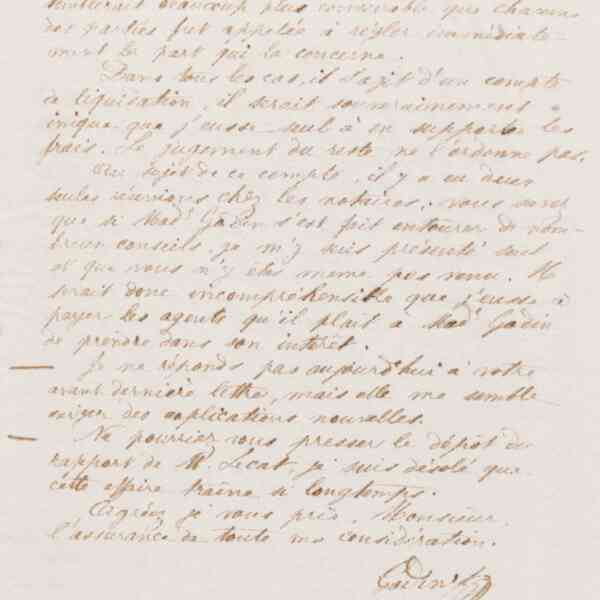 semblerait beaucoup plus convenable que chacune
des parties fut appelée à régler immédiate-
ment la part qui la concerne.
Dans tous les cas, il s'agit d'un compte
de liquidation, il serait souverainement
inique que j'eusse seul à en supporter les
frais. Le jugement du reste ne l'ordonne pas.
Au sujet de ce compte, il y a eu deux
seules réunions chez les notaires, vous savez
que si Mad.e Godin s'est fait entourer de nom-
breux conseils, je m'y suis présenté seul
et que vous n'y êtes même pas venu. Il
serait donc incompréhensible que j'eusse à
payer les agents qu'il plait à Mad.e Godin
de prendre dans son intérêt.
Je ne réponds pas aujourd'hui à votre
avant dernière lettre, mais elle me semble
exiger des explications nouvelles.
Ne pourriez vous presser le dépôt du
rapport de Mr. Lecat, je suis désolé que
cette affaire traîne si longtemps.
Agréez je vous prie, Monsieur,
l'assurance de toute ma considération.
Godin